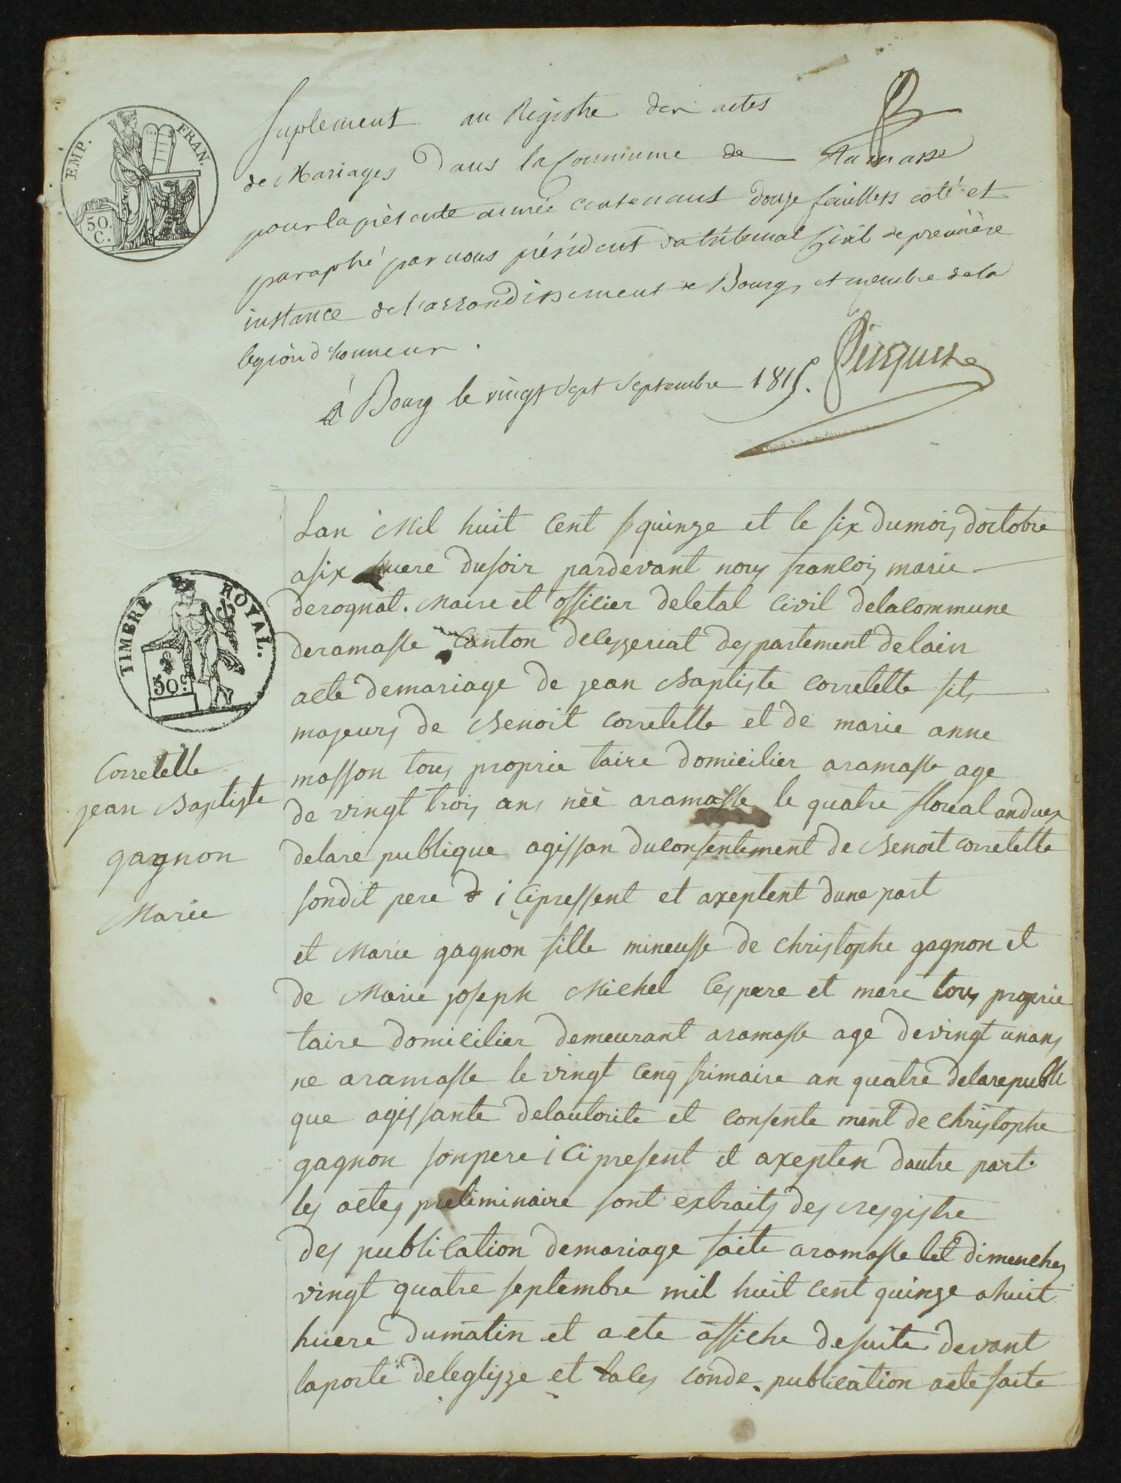 EMP. FRAN.
50. C.
Suplement au Registre des actes
de Mariages Dans la Commune de Ramasse
pour la présente année contenant douze feuillets coté et
paraphé par nous président du tribunal Civil de première
instance de l'arrondissement de Bourg, et membre de la
légion d'honneur.
à Bourg le vingt sept septembre 1815.
TIMBRE ROYAL.
50c
Correlette
jean Baptiste
gagnon
Marie
Lan Mil huit Cent quinze et le six dumois doctobre
asix huere dusoir pardevant nous francois marie
derognat. Maire et officier deletat Civil delacommune
deramasse Canton deCeyzeriat despartement delain
acte demariage de jean Baptiste correlette fils
majeurs de Benoit correlette et de marie anne
masson tous proprie taire domicilier aramasse age
de vingt trois ans néé aramasse le quatre floreal anduex
delare publique agissan duconsentement de Benoit correlette
sondit pere i cipressent et axeptent dune part
et Marie gagnon fille mineusse de christophe gagnon et
de Marie joseph Michel Cespere et mere tous proprie
taire domicilier demeurant aramasse age devingt unans
ne aramasse le vingt cenq frimaire an quatre delarepubli
que agissante delautorite et consente ment de christophe
gagnon sonpere i Ci present et axepten dautre part.
les actes preliminaire sont extraits des resgistre
des publication demariage faite aramasse let dimenches
vingt quatre septembre mil huit cent quinze ahuit
huere dumatin et acte affiche desuite devant
laporte deleglisze et lales conde publication acte faite